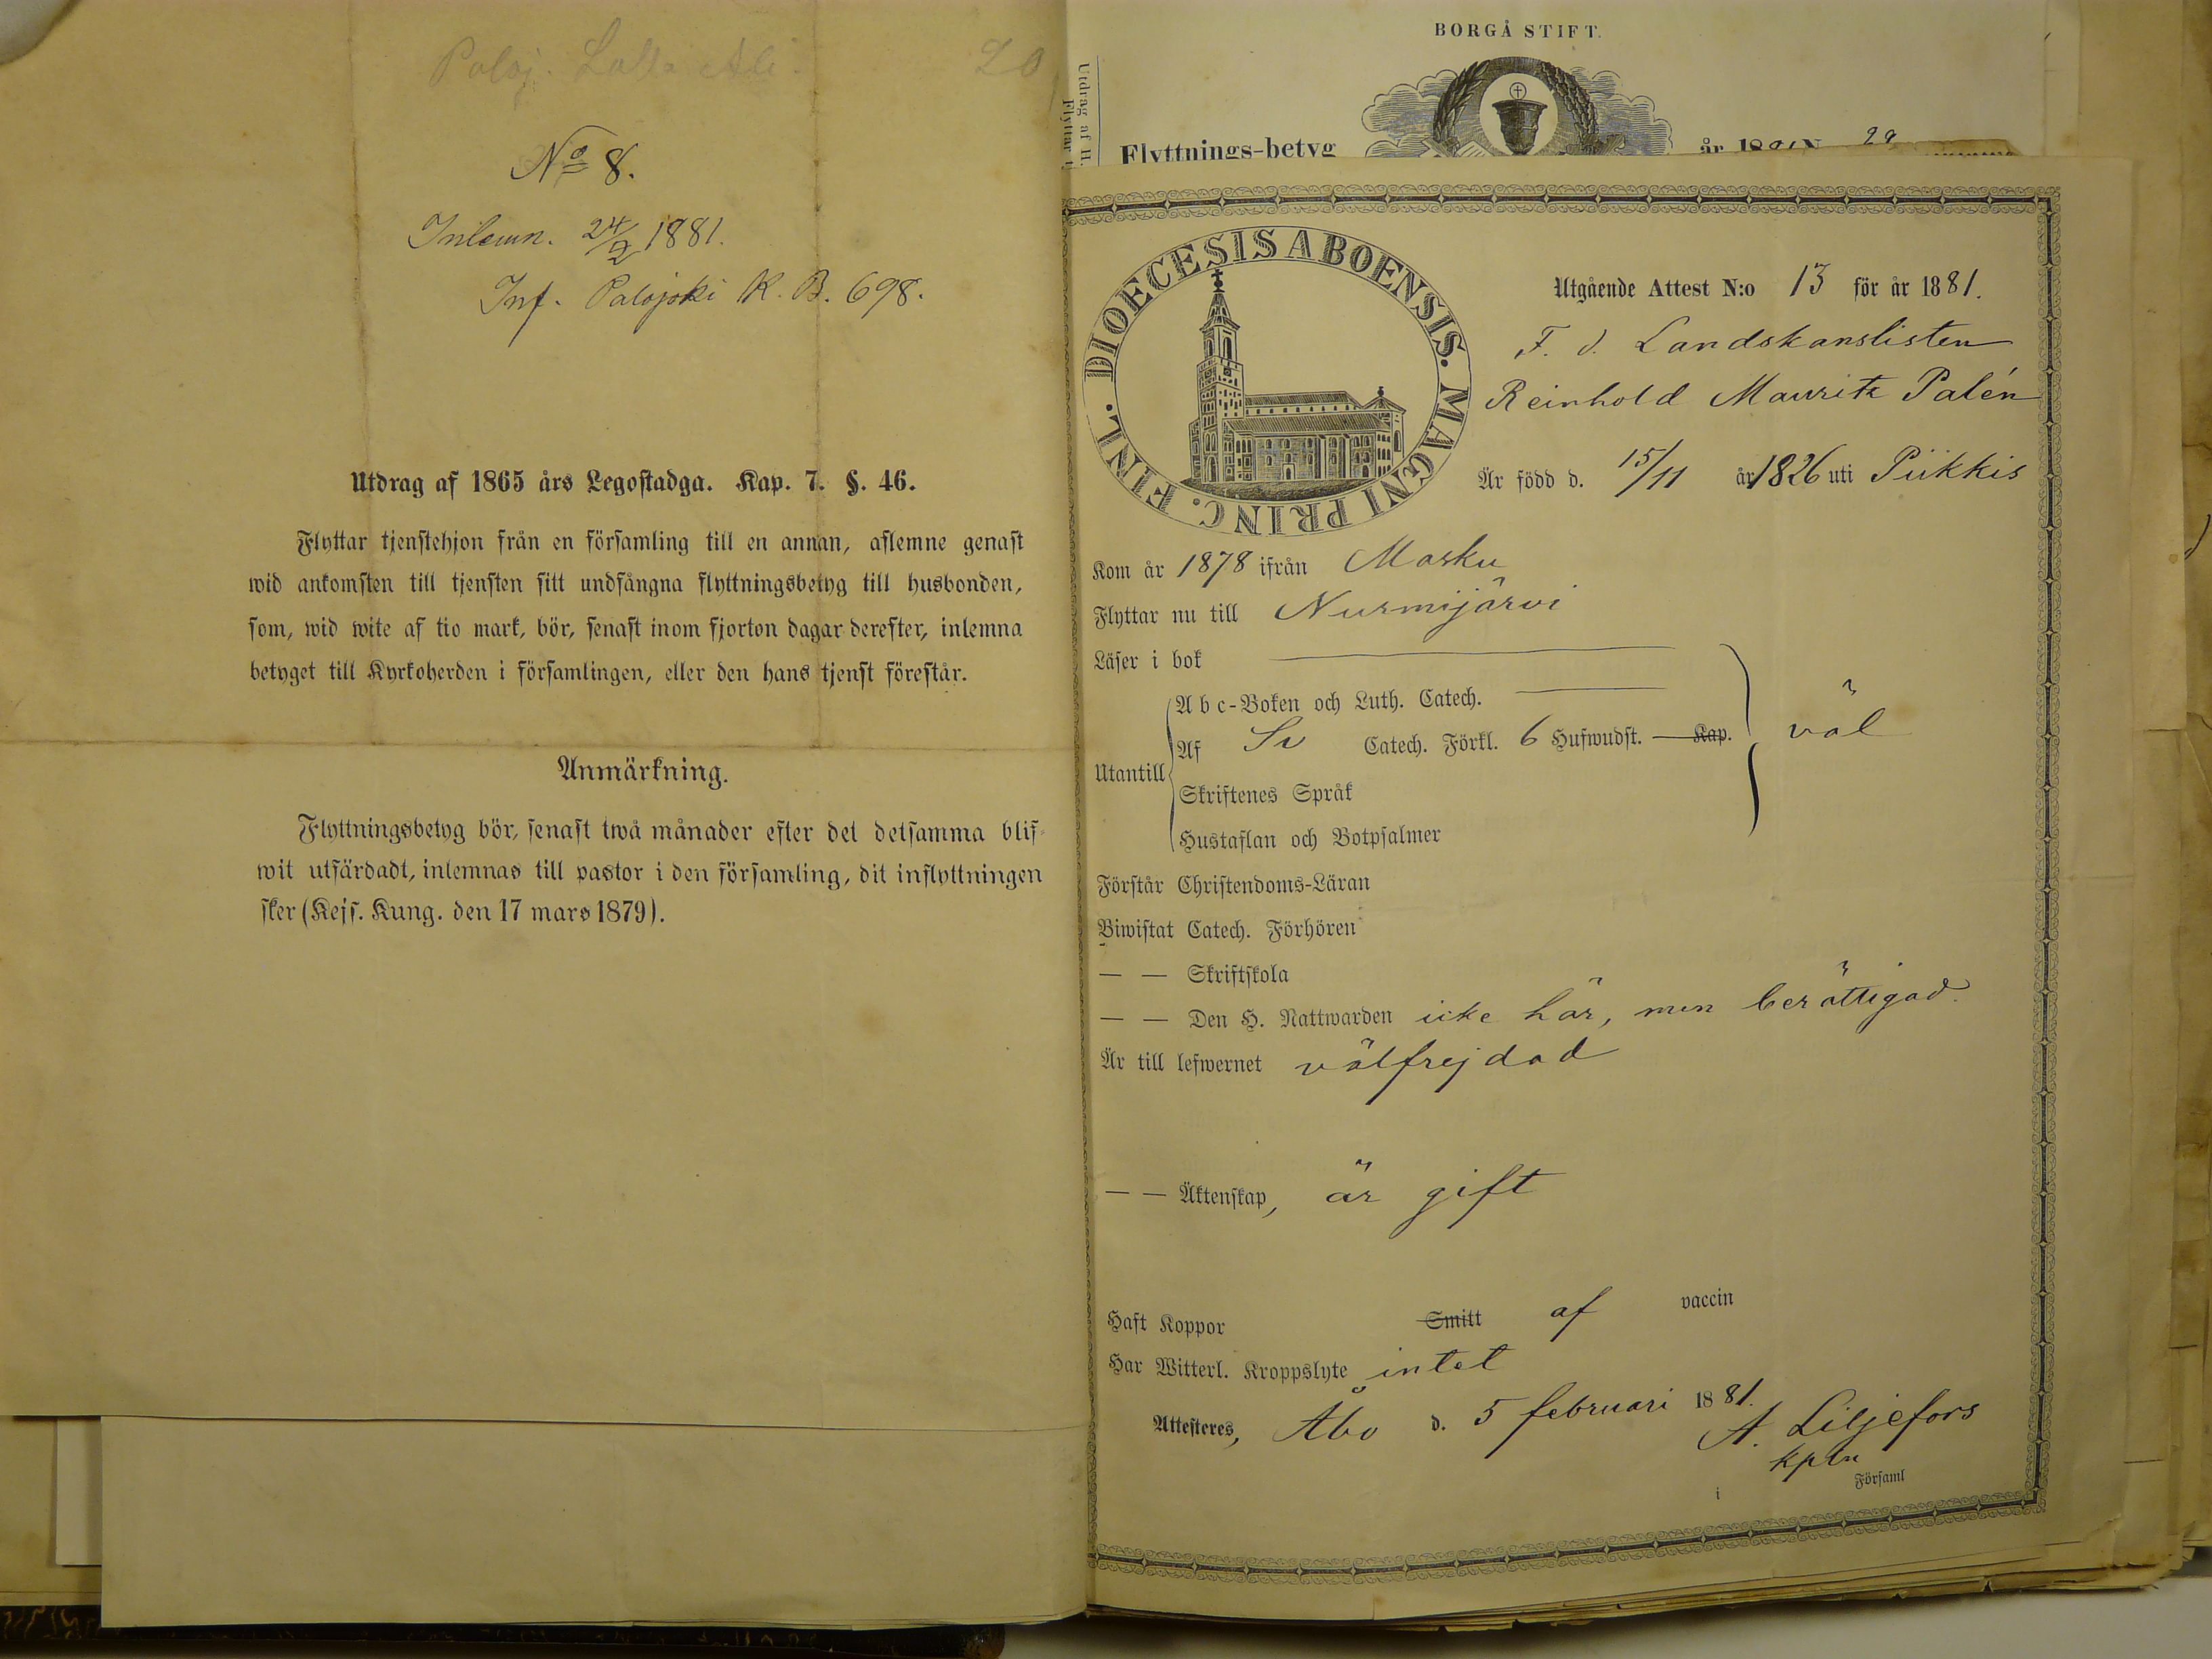 20
No 8.
Inlemn. 24/2 1881.
Inf. Palojoki K. B. 698.
Utdrag af 1865 års Legostadga. Kap. 7. §. 46.
Flyttar tjenstehjon från en församling till en annan, aflemne genast
wid ankomsten till tjensten sitt undfångna flyttningsbetyg till husbonden,
som, wid wite af tio mark, bör, senast inom fjorton dagar derefter, inlemna
betyget till Kyrkoherden i församlingen, eller den hans tjenst förestår.
Anmärkning.
Flyttningsbetyg bör, senast twå månader efter det detsamma blif-
wit utfärdadt, inlemnas till pastor i den församling, dit inflyttningen
sker (Kejs. Kung. den 17 mars 1879).
BORGÅ STIFT.
Utdrag af
Flyttar
Flyttnings-betyg år 18
DIOECESIS ABOENSIS. MAGNI PRINC. FINL.
Utgående Attest N:o 13 för år 1881.
F. d. Landskanslisten
Reinhold Mauritz Palén
Är född d. 15/11 år 1826 uti Piikkis
Kom år 1878 ifrån Masku
Flyttar nu till Nurmijärvi
Läser i bok
Utantill
A b c-Boken och Luth. Catech.
Af Sv Catech. Förkl. 6 Hufwudst. — Kap. väl
Skriftenes Språk
Hustaflan och Botpsalmer
Förstår Christendoms-Läran
Biwistat Catech. Förhören
— — Skriftskola
— — Den H. Nattwarden icke här, men berättigad.
Är till lefwernet välfrejdad
— — Äktenskap, är gift
Haft Koppor Smitt af vaccin
Har Witterl. Kroppslyte intet
Attesteres, Åbo d. 5 februari 1881.
A. Liljefors
kpln
i Församl